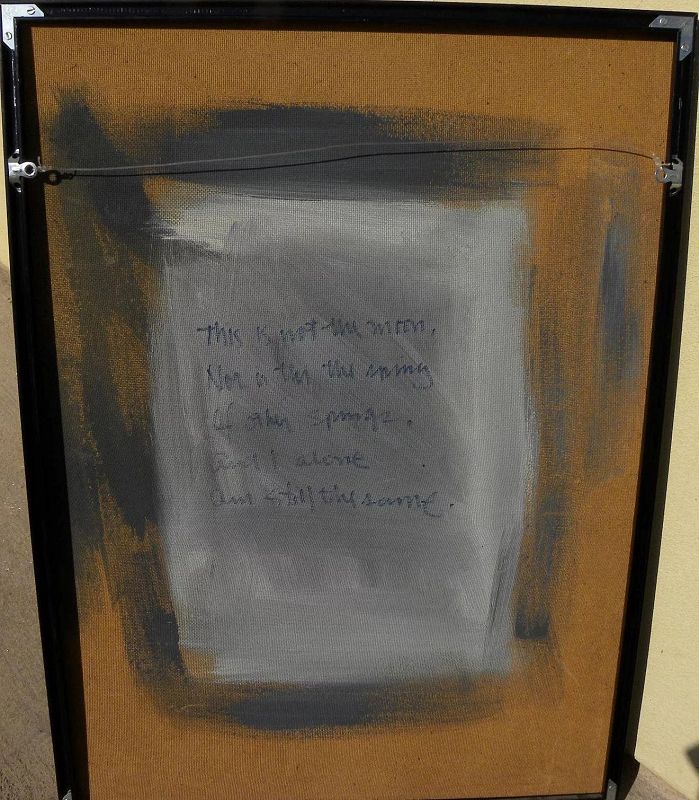 This is not the moon,
Nor is this the spring
Of other springs.
And I alone
Am still the same.